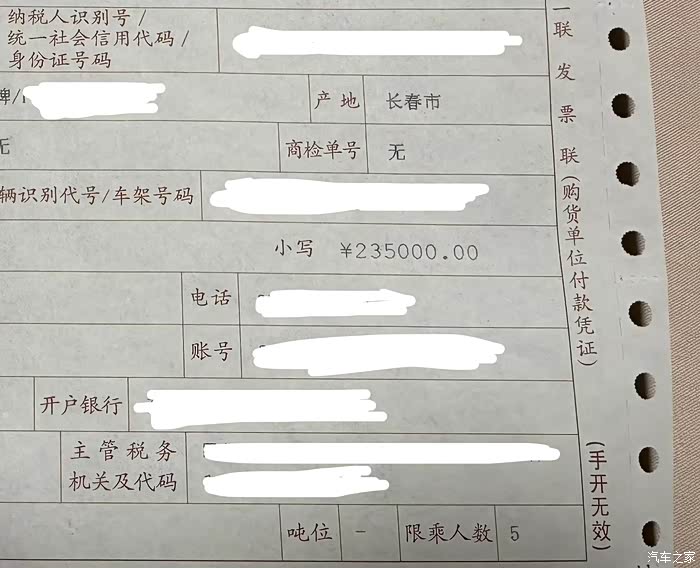 纳税人识别号/
统一社会信用代码/
身份证号码
牌/
产地 长春市
无
商检单号 无
辆识别代号/车架号码
小写 ¥235000.00
电话
账号
开户银行
主管税务
机关及代码
吨位 - 限乘人数 5
一联 发票联(购货单位付款凭证)
(手开无效)
汽车之家